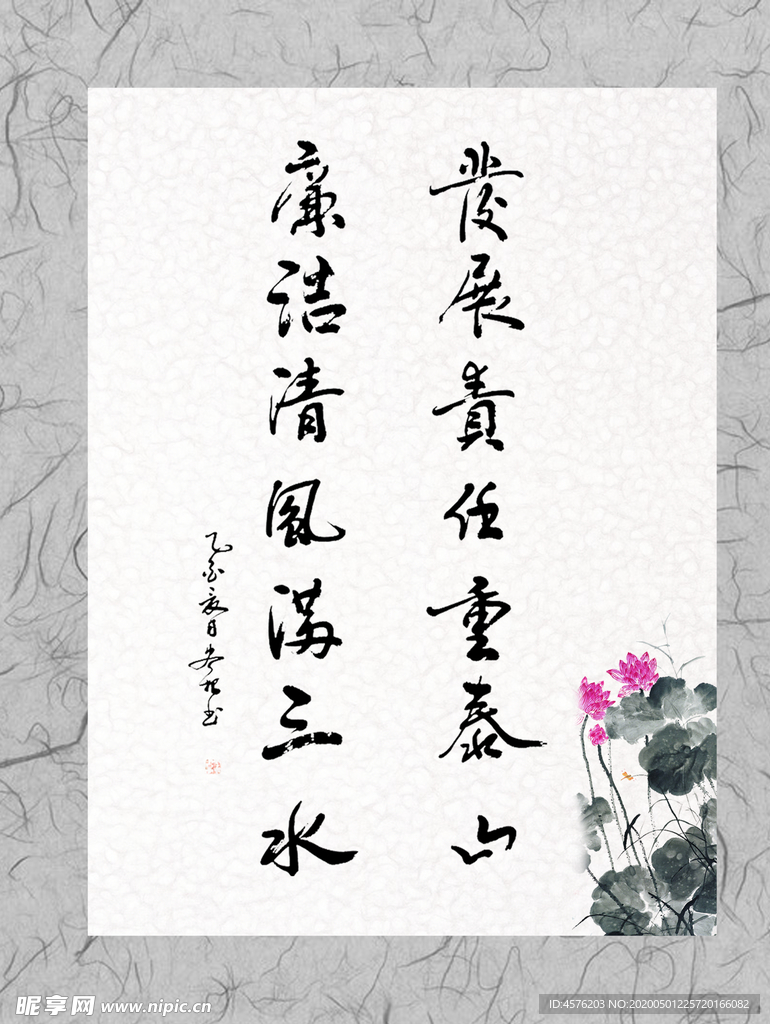 發展責任重泰山
廉洁清風滿三水
夏日
昵享网 www.nipic.cn
ID:4576203 NO:20200501225720166082